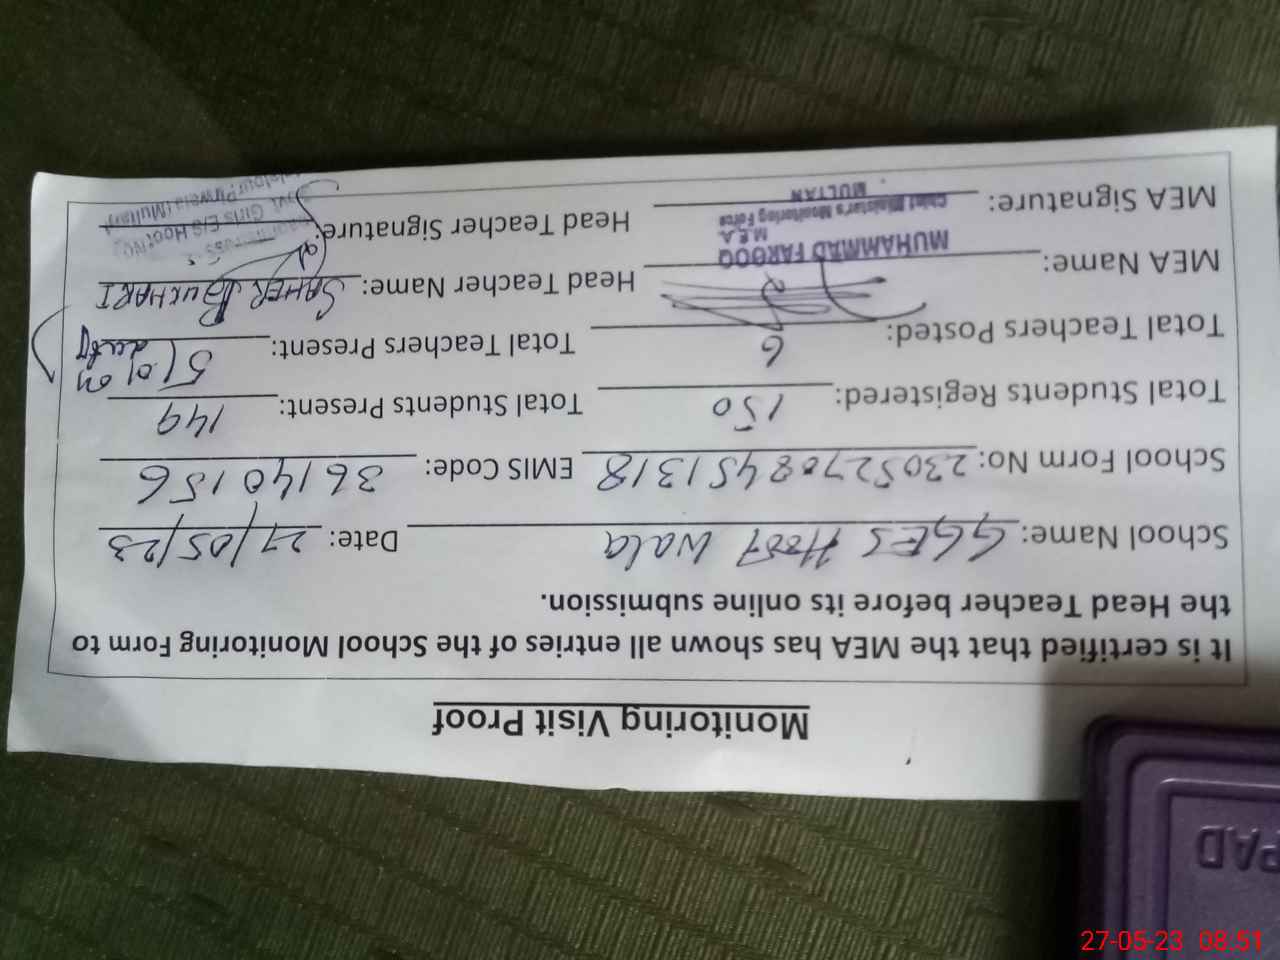 Monitoring Visit Proof
It is certified that the MEA has shown all entries of the School Monitoring Form to
the Head Teacher before its online submission.
School Name: GGES Hoot Wala Date: 27/05/23
School Form No: 2305270845 1318 EMIS Code: 36140156
Total Students Registered: 150 Total Students Present: 149
Total Teachers Posted: 6 Total Teachers Present: 5/01 on duty
MEA Name: Head Teacher Name: SAHER BUKHARI
MUHAMMAD FAROOQ
M.E.A.
Chief Minister's Monitoring Force
MULTAN
MEA Signature: Head Teacher Signature:
Govt. Girls E/S Hoot
Jalalpur Pirwala (Multan)
PAD
27-05-23 08:51